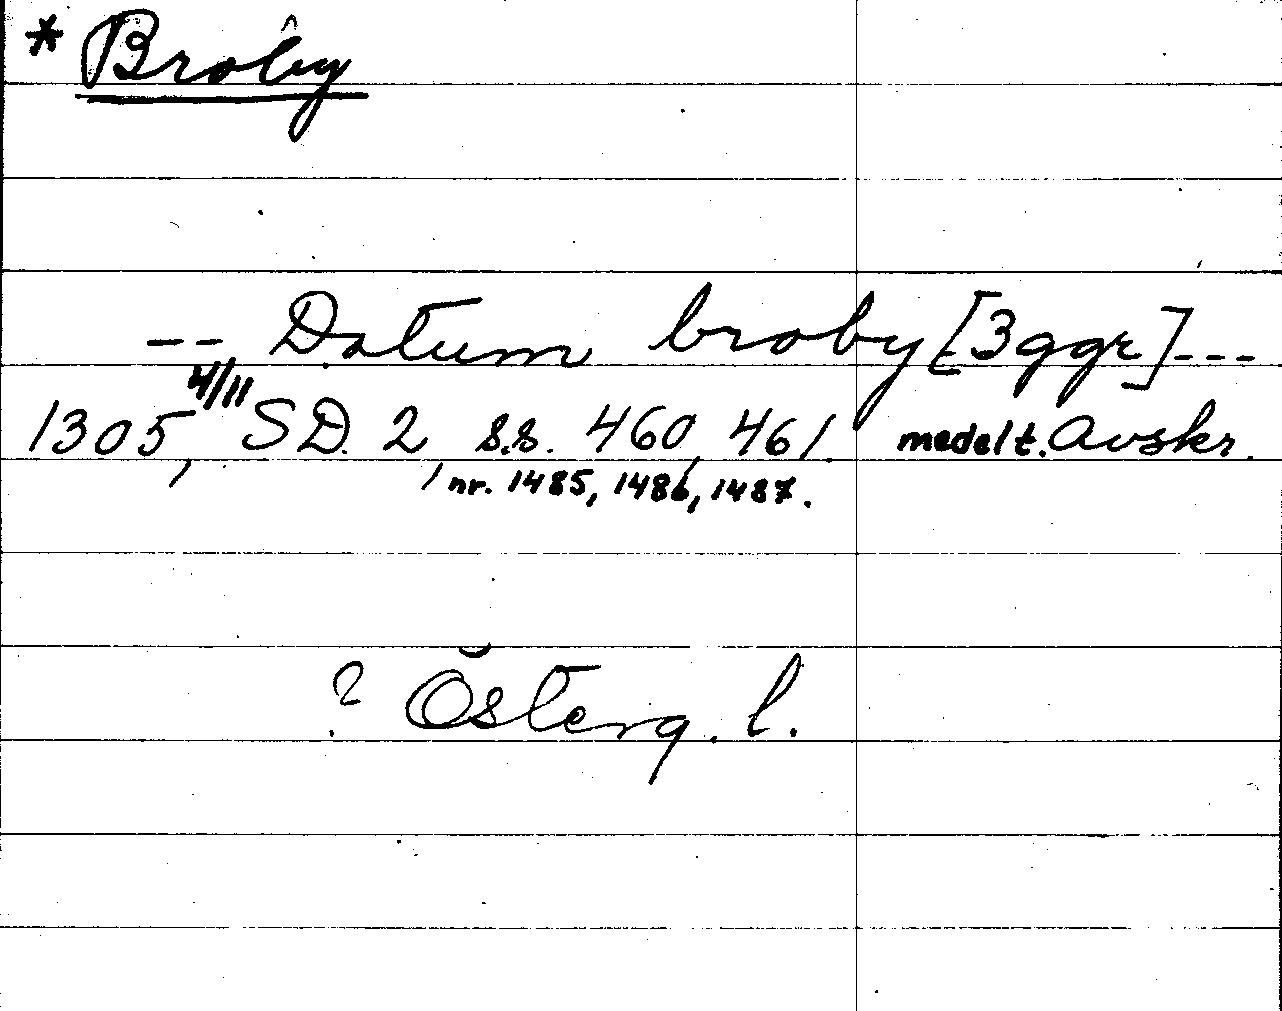 * Broby
-- Datum broby [3 ggr] ---
1305, 4/11 SD. 2 s.s. 460, 461. medelt. Avskr.
/ nr. 1485, 1486, 1487.
? Österg. l.